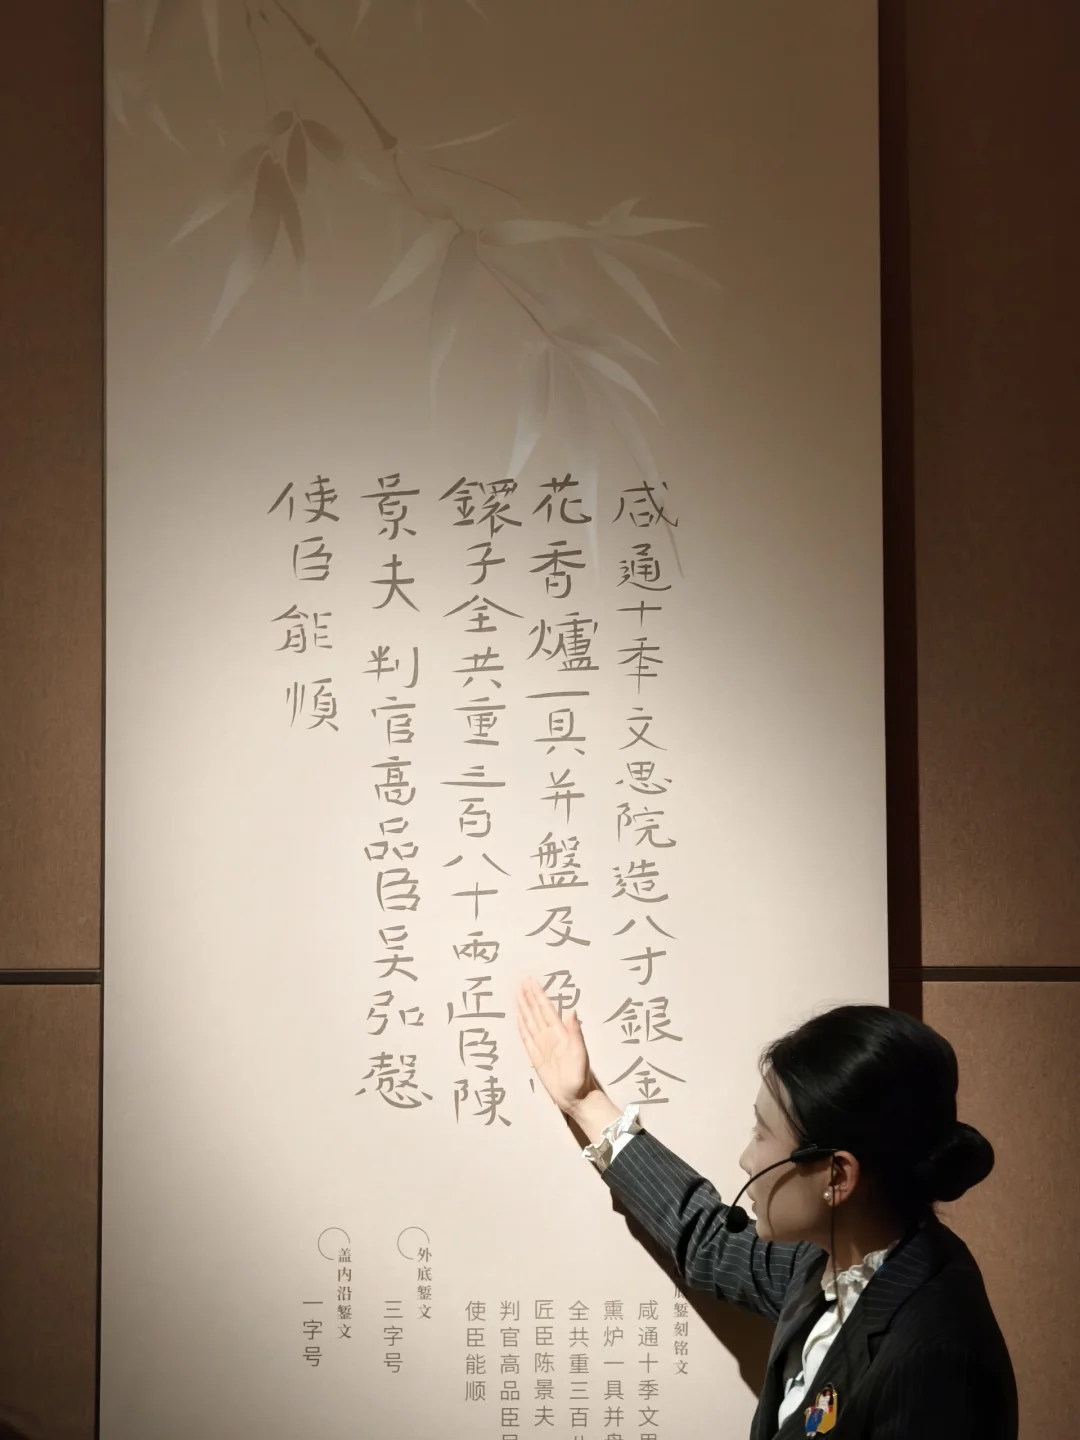 咸通十秊文思院造八寸銀金
花香爐一具并盤及朶
鐶子全共重三百八十兩匠臣陳
景夫判官高品臣吴弘慤
使臣能順
底錾刻铭文
咸通十季文思
熏炉一具并盘
全共重三百八
匠臣陈景夫
判官高品臣吴
使臣能顺
外底錾文
三字号
盖内沿錾文
一字号